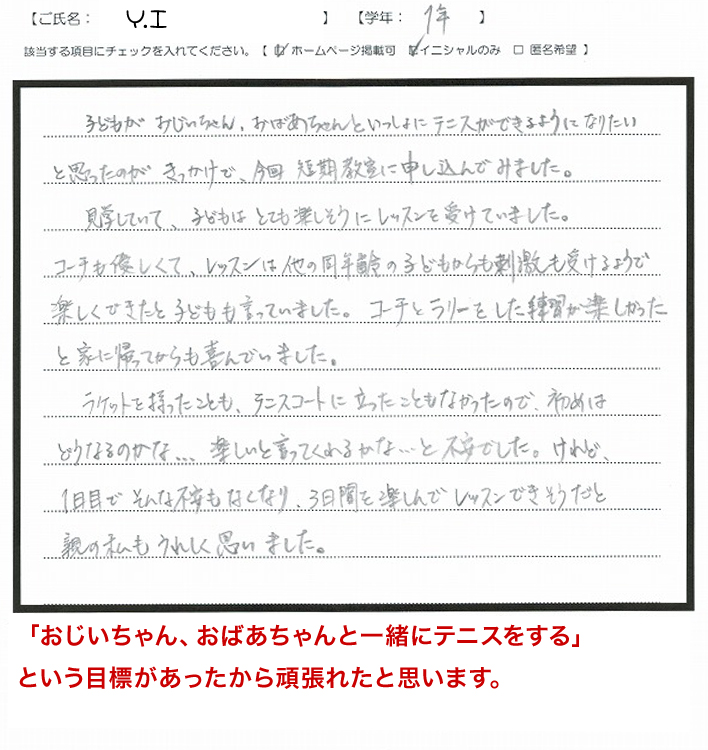 【ご氏名： Y.I 】 【学年： 1年 】
該当する項目にチェックを入れてください。【 ☑ ホームページ掲載可 ☑ イニシャルのみ □ 匿名希望 】
子どもが おじいちゃん、おばあちゃんといっしょに テニスができるようになりたい
と思ったのが きっかけで、今回 短期教室に申し込んでみました。
見学していて、子どもは とても楽しそうに レッスンを受けていました。
コーチも優しくて、レッスンは他の同年齢の子どもからも刺激も受けるようで
楽しくできたと子どもも言っていました。 コーチとラリーをした練習が楽しかった
と家に帰ってからも喜んでいました。
ラケットを採ったことも、テニスコートに立ったこともなかったので、初めは
どうなるのかな... 楽しいと言ってくれるかな...と 不安でした。けれど、
1日目で そんな不安もなくなり、3日間を楽しんで レッスンできそうだと
親の私も うれしく思いました。
「おじいちゃん、おばあちゃんと一緒にテニスをする」
という目標があったから頑張れたと思います。